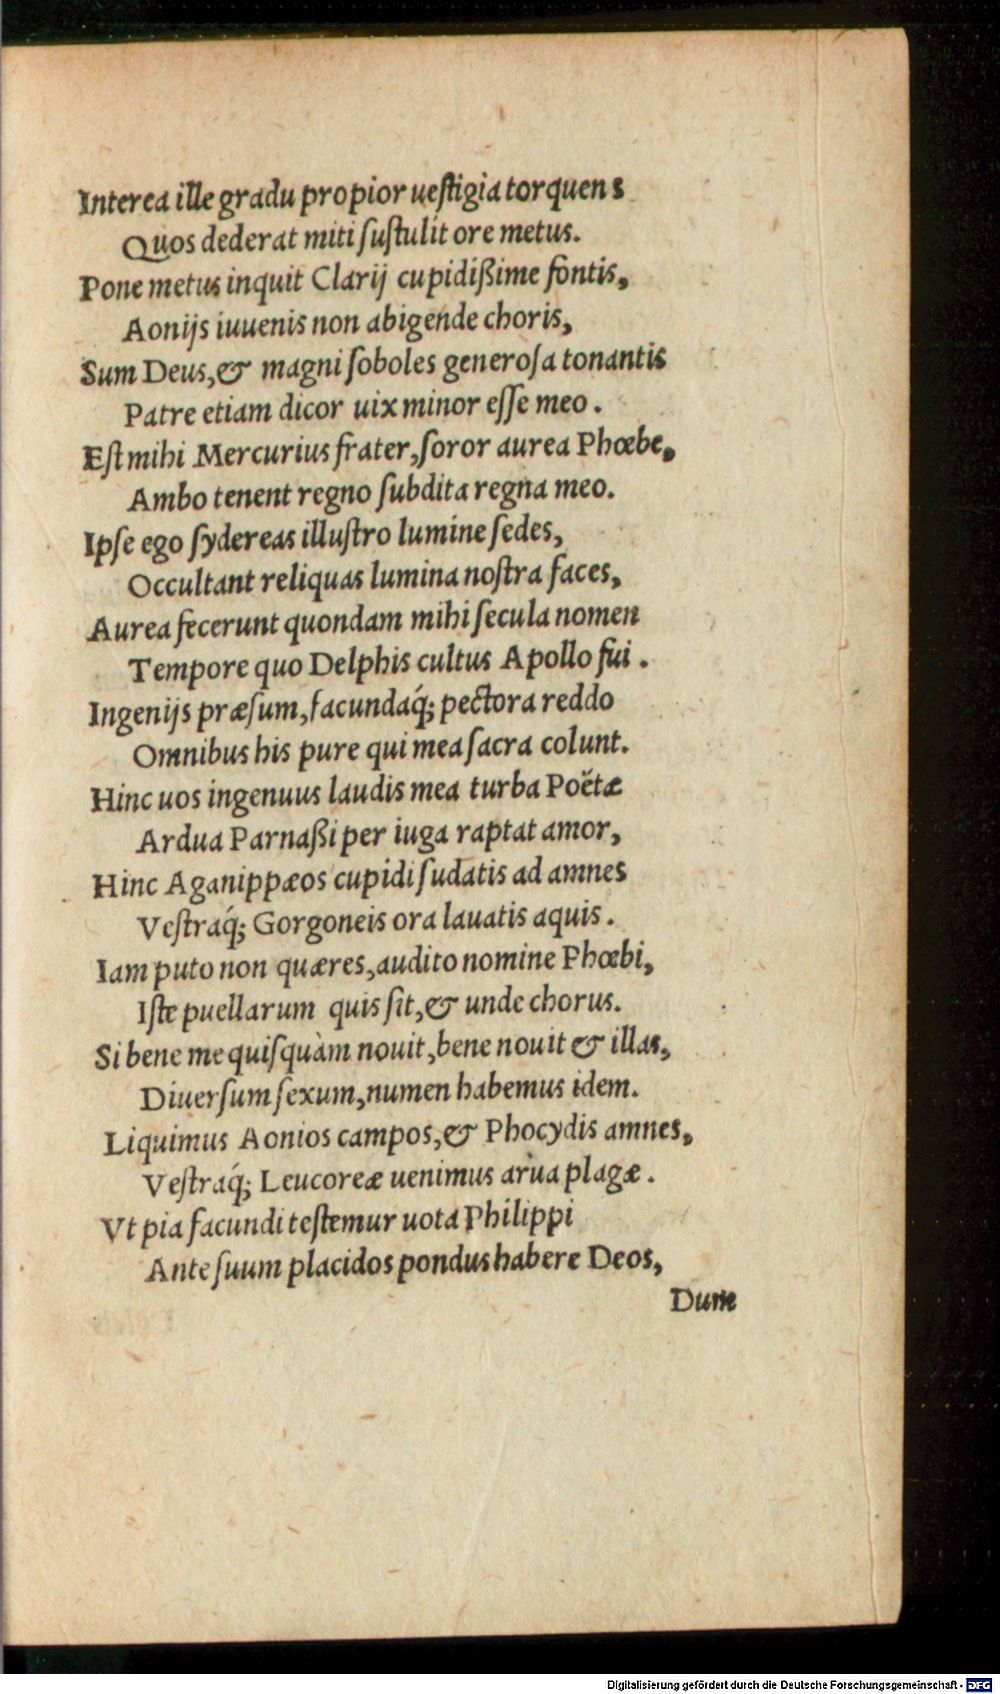 Interea ille gradu propior ueſtigia torquens
Quos dederat miti ſuſtulit ore metus.
Pone metus inquit Clarij cupidißime fontis,
Aonijs iuuenis non abigende choris,
Sum Deus, & magni ſoboles generoſa tonantis
Patre etiam dicor uix minor eſſe meo.
Est mihi Mercurius frater, ſoror aurea Phœbe,
Ambo tenent regno ſubdita regna meo.
Ipſe ego ſydereas illuſtro lumine ſedes,
Occultant reliquas lumina noſtra faces,
Aurea fecerunt quondam mihi ſecula nomen
Tempore quo Delphis cultus Apollo fui.
Ingenijs præſum, facundaq́; pectora reddo
Omnibus his pure qui mea ſacra colunt.
Hinc uos ingenuus laudis mea turba Poëtæ
Ardua Parnaßi per iuga raptat amor,
Hinc Aganippæos cupidi ſudatis ad amnes
Veſtraq́; Gorgoneis ora lauatis aquis.
Iam puto non quæres, audito nomine Phœbi,
Iſte puellarum quis ſit, & unde chorus.
Si bene me quiſquàm nouit, bene nouit & illas,
Diuerſum ſexum, numen habemus idem.
Liquimus Aonios campos, & Phocydis amnes,
Veſtraq́; Leucoreæ uenimus arua plagæ.
Vt pia facundi teſtemur uota Philippi
Ante ſuum placidos pondus habere Deos,
Dum
Digitalisierung gefördert durch die Deutsche Forschungsgemeinschaft - DFG